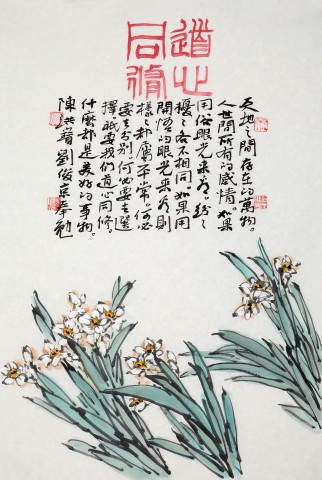 道心
同修
天地之間存在的萬物。
人世間所有的感情。如果
用俗眼光來看。紛紛
擾擾各不相同。如果用
開悟的眼光來看則
樣樣都屬平常。何必
要去分別何必要去選
擇。祇要我們道心同修。
什麼都是美好的事物。
劉俊京奉勉